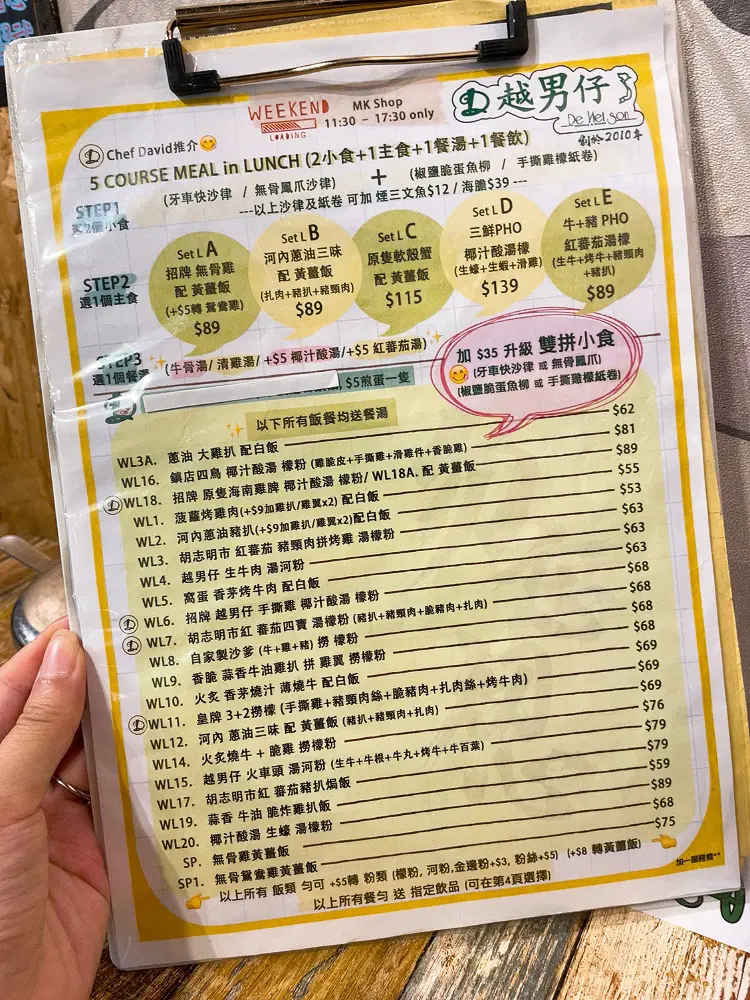 WEEKEND
LOADING...
MK Shop
11:30 - 17:30 only
越男仔
De Nei Son
創於2010年
Chef David推介
5 COURSE MEAL in LUNCH (2小食+1主食+1餐湯+1餐飲)
STEP1
選2個小食
(牙車快沙律 / 無骨鳳爪沙律) + (椒鹽脆蛋魚柳 / 手撕雞檬紙卷)
---以上沙律及紙卷 可加 煙三文魚$12 / 海膽$39 ---
STEP2
選1個主食
Set L A
招牌 無骨雞
配 黃薑飯
(+$5轉 鴛鴦雞)
$89
Set L B
河內蔥油三味
配 黃薑飯
(扎肉+豬扒+豬頸肉)
$89
Set L C
原隻軟殼蟹
配 黃薑飯
$115
Set L D
三鮮PHO
椰汁酸湯檬
(生蠔+生蝦+滑雞)
$139
Set L E
牛+豬 PHO
紅蕃茄湯檬
(生牛+烤牛+豬頸肉
+豬扒)
$89
STEP3
選1個餐湯
(牛骨湯/ 清雞湯/ +$5 椰汁酸湯/+$5 紅蕃茄湯)
, $5煎蛋一隻
加 $35 升級 雙拼小食
(牙車快沙律 或 無骨鳳爪)
(椒鹽脆蛋魚柳 或 手撕雞檬紙卷)
以下所有飯餐均送餐湯
WL3A. 蔥油 大雞扒 配白飯 $62
WL16. 鎮店四鳥 椰汁酸湯 檬粉 (雞脆皮+手撕雞+滑雞件+香脆雞) $81
WL18. 招牌 原隻海南雞脾 椰汁酸湯 檬粉/ WL18A. 配 黃薑飯 $89
WL1. 菠蘿烤雞肉(+$9加雞扒/雞翼x2) 配白飯 $55
WL2. 河內蔥油豬扒(+$9加雞扒/雞翼x2)配白飯 $53
WL3. 胡志明市 紅蕃茄 豬頸肉拼烤雞 湯檬粉 $63
WL4. 越男仔 生牛肉 湯河粉 $63
WL5. 窩蛋 香茅烤牛肉 配白飯 $63
WL6. 招牌 越男仔 手撕雞 椰汁酸湯 檬粉 $68
WL7. 胡志明市紅 蕃茄四寶 湯檬粉 (豬扒+豬頸肉+脆豬肉+扎肉) $68
WL8. 自家製沙爹 (牛+雞+豬) 撈 檬粉 $68
WL9. 香脆 蒜香牛油雞扒 拼 雞翼 撈檬粉 $68
WL10. 火炙 香茅燒汁 薄燒牛 配白飯 $69
WL11. 皇牌 3+2撈檬 (手撕雞+豬頸肉絲+脆豬肉+扎肉絲+烤牛肉) $69
WL12. 河內 蔥油三味 配 黃薑飯 (豬扒+豬頸肉+扎肉) $69
WL14. 火炙燒牛 + 脆雞 撈檬粉 $76
WL15. 越男仔 火車頭 湯河粉 (生牛+牛根+牛丸+烤牛+牛百葉) $79
WL17. 胡志明市紅 蕃茄豬扒焗飯 $79
WL19. 蒜香 牛油 脆炸雞扒飯 $59
WL20. 椰汁酸湯 生蠔 湯檬粉 $89
SP. 無骨雞黃薑飯 $68
SP1. 無骨鴛鴦雞黃薑飯 $75
以上所有 飯類 勻可 +$5轉 粉類 (檬粉, 河粉,金邊粉+$3, 粉絲+$5) (+$8 轉黃薑飯)
以上所有餐勻 送 指定飲品 (可在第4頁選擇)
加一服務費**